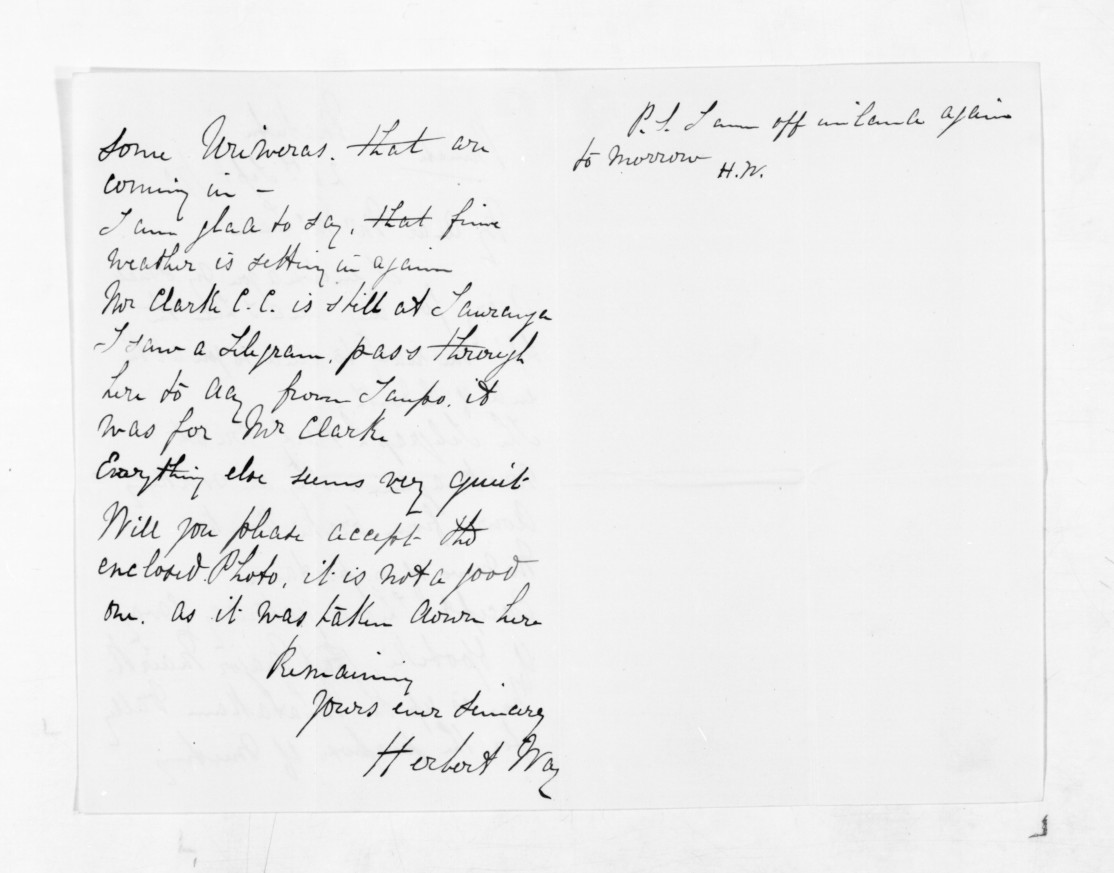 some Uriweras. that are
coming in –
I am glad to say, that fine
weather is setting in again
Mr Clark C.C. is still at Tauranga
I saw a telegram, pass through
here to day from Taupo. it
was for Mr Clarke
Everything else seems very quiet
Will you please accept the
enclosed Photo, it is not a good
one. as it was taken down here
Remaining
Yours ever sincerely
Herbert Way
P.S. I am off inland again
to morrow
H.W.